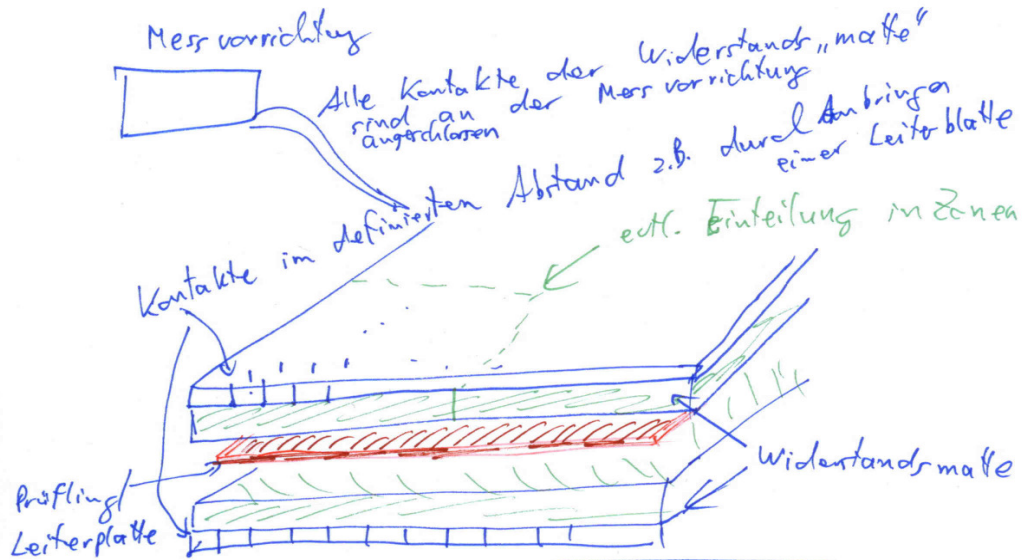 Messvorrichtung
Alle Kontakte der Widerstands„matte“
sind an der Messvorrichtung
angeschlossen
Kontakte im definierten Abstand z.B. durch Anbringen
einer Leiterblatte
evtl. Einteilung in Zonen
Widerstandsmatte
Prüfling/
Leiterplatte